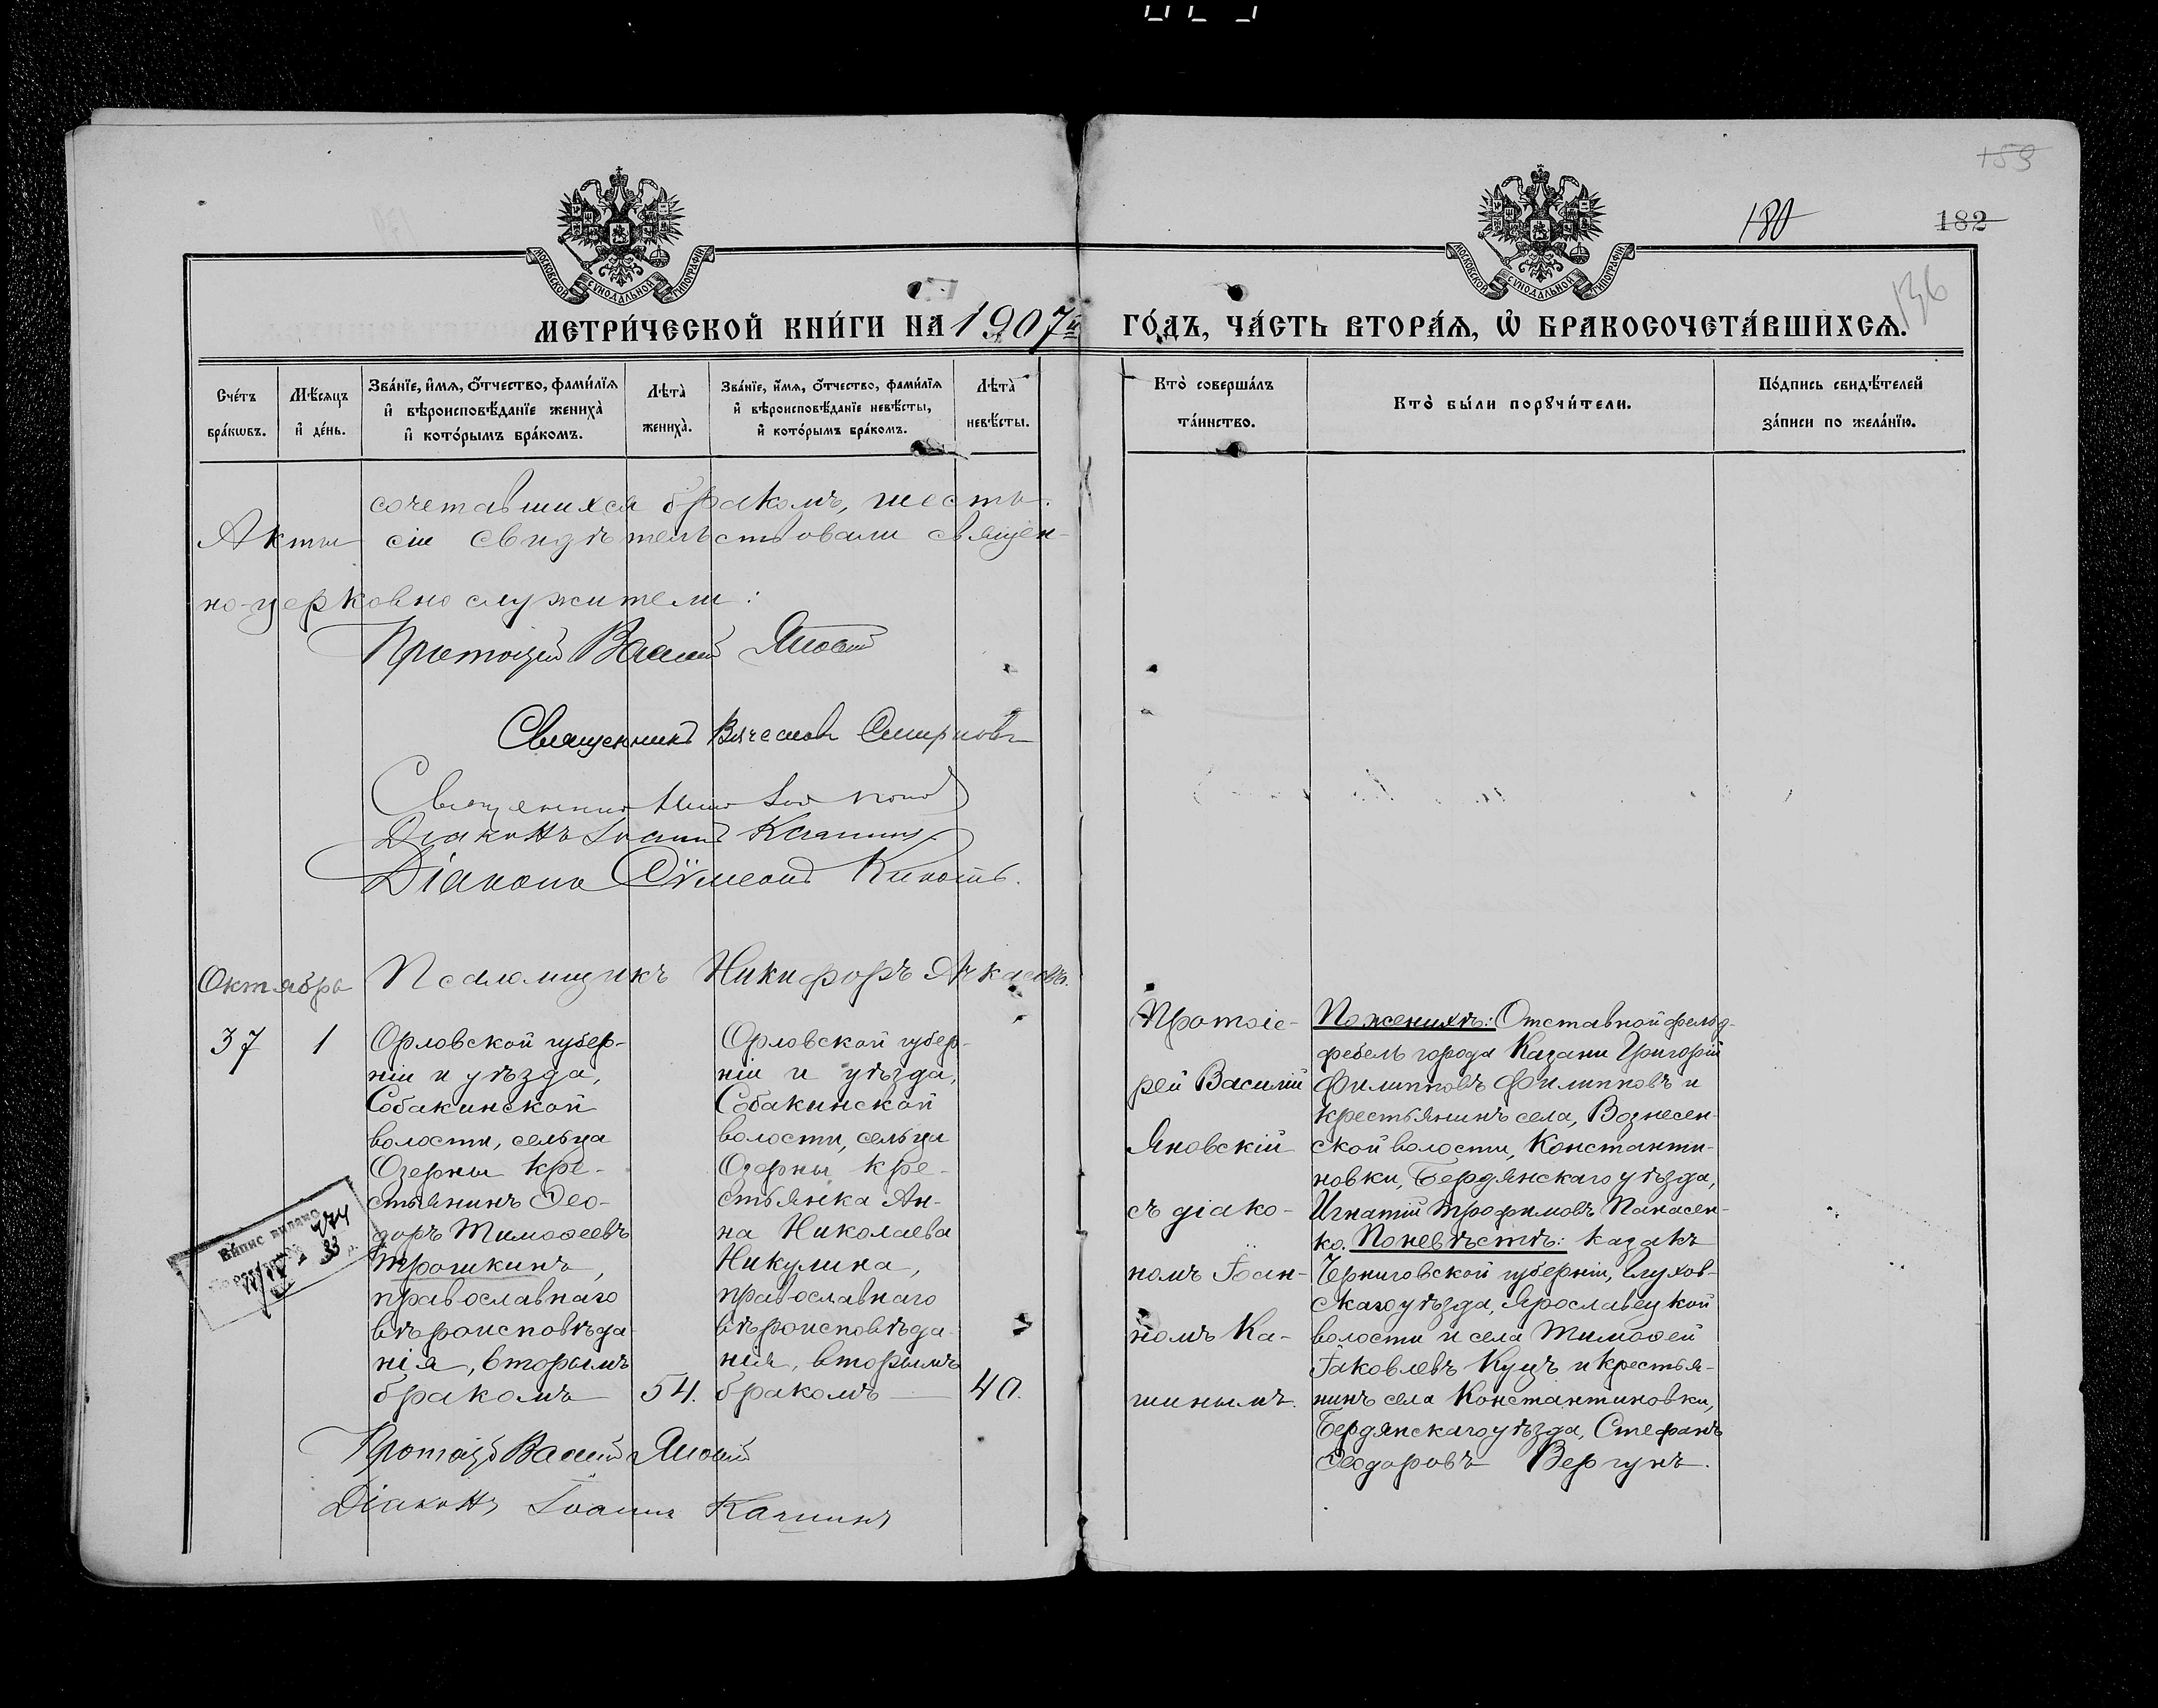 159
180
182
136
МЕТРИ́ЧЕСКОЙ КНИ́ГИ НА 1907й ГО́ДЪ, ЧА́СТЬ ВТОРА́Я, Ѡ БРАКОСОЧЕТА́ВШИХСѦ.
Сче́тъ бра́кѡвъ.
Мѣ́сяцъ и҆ де́нь.
Зва́нїе, и҆́мѧ, ѻ҆́тчество, фами́лїѧ
и҆ вѣроисповѣ́данїе жениха̀
и҆ кото́рымъ бра́комъ.
Лѣта̀ жениха̀.
Зва́нїе, и҆́мѧ, ѻ҆́тчество, фами́лїѧ
и҆ вѣроисповѣ́данїе невѣ́сты,
и҆ кото́рымъ бра́комъ.
Лѣта̀ невѣ́сты.
Кто̀ соверша́лъ та́инство.
Кто̀ бы́ли порꙋчи́тели.
По́дпись свидѣ́телей
за́писи по жела́нїю.
сочетавшихся бракомъ, шесть.
Акты сіи свидѣтельствовали священ-
но-церковнослужители:
Протоіерей Василій Яновскій
Священникъ Вячеславъ Смирновъ
Священникъ
Діаконъ Іоаннъ Кашинъ
Діаконъ Сѵмеонъ
Псаломщикъ Никифоръ Аѳкасовъ.
Октябрь
37
1
Орловской губер-
ніи и уѣзда,
Собакинской
волости, сельца
Озерны кре-
стьянинъ Ѳео-
доръ Тимоѳеевъ
Трошкинъ,
православнаго
вѣроисповѣда-
нія, вторымъ
бракомъ
54.
Орловской губер-
ніи и уѣзда,
Собакинской
волости, сельца
Озерны кре-
стьянка Ан-
на Николаева
Никулина,
православнаго
вѣроисповѣда-
нія, вторымъ
бракомъ
40.
Протоіе-
рей Василій
Яновскій
съ діако-
номъ Іоан-
номъ Ка-
шинымъ.
По женихѣ: Отставной фельд-
фебель города Казани Григорій
Филипповъ Филипповъ и
крестьянинъ села, Вознесен-
ской волости, Константи-
новки, Бердянскаго уѣзда,
Игнатій Трофимовъ Панасен-
ко. По невѣстѣ: казакъ
Черниговской губерніи, Глухов-
скаго уѣзда, Ярославецкой
волости и села Тимоѳей
Іаковлевъ Куцъ и крестья-
нинъ села Константиновки,
Бердянскаго уѣзда, Стефанъ
Ѳеодоровъ Вергунъ.
Випис видано
Протоіерей Василій Яновскій
Діаконъ Іоаннъ Кашинъ